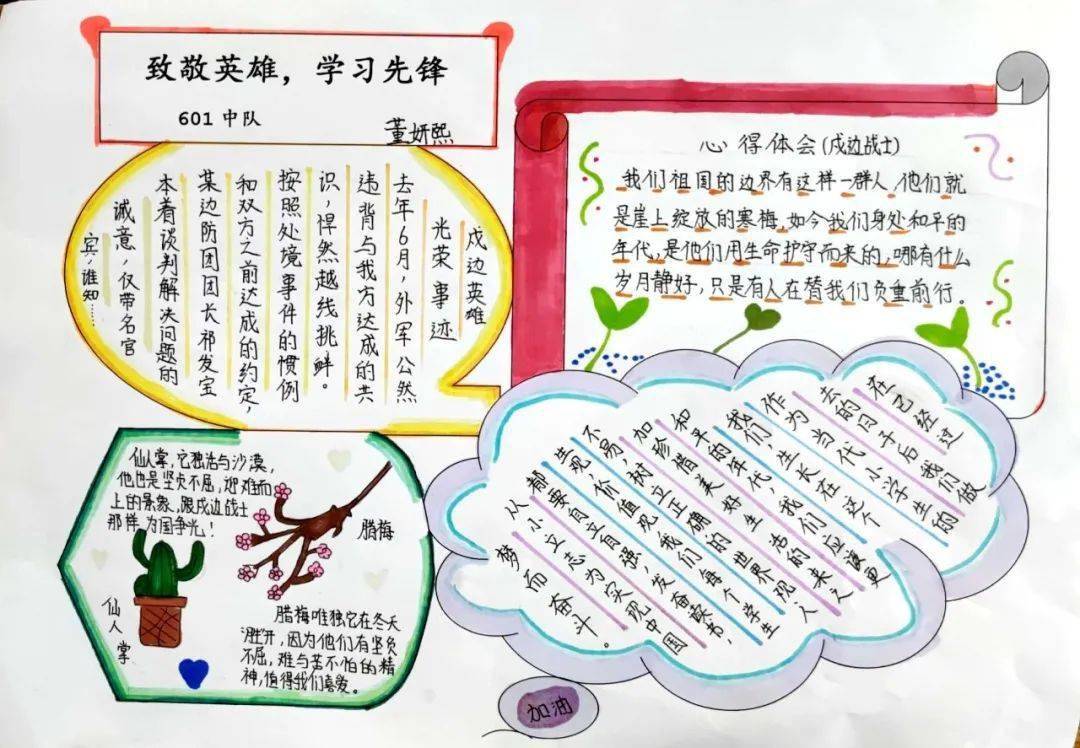 致敬英雄，学习先锋
601中队
董妍熙
戍边英雄
光荣事迹
去年6月，外军公然
违背与我方达成的共
识，悍然越线挑衅。
按照处境事件的惯例
和双方之前达成的约定，
某边防团团长祁发宝
本着谈判解决问题的
诚意，仅带名官
宾，谁知……
心得体会(戍边战士)
我们祖国的边界有这样一群人，他们就
是崖上绽放的寒梅，如今我们身处和平的
年代，是他们用生命护守而来的，哪有什么
岁月静好，只是有人在替我们负重前行。
仙人掌，它独活与沙漠，
他也是坚贞不屈，迎难而
上的景象，跟戍边战士
那样为国争光！
腊梅
仙人掌
腊梅唯独它在冬天
盛开，因为他们有坚贞
不屈，难与苦不怕的精
神，值得我们喜爱。
在已经过
去的日子后我们做
作为当代小学生的
我们生长在这个
和平的年代，我们应该更
加珍惜美好生活的来之
不易，树立正确的世界观人
生观、价值观，我们每个学生
都要自立自强，发奋读书，
从小立志为实现中国
梦而奋斗。
加油